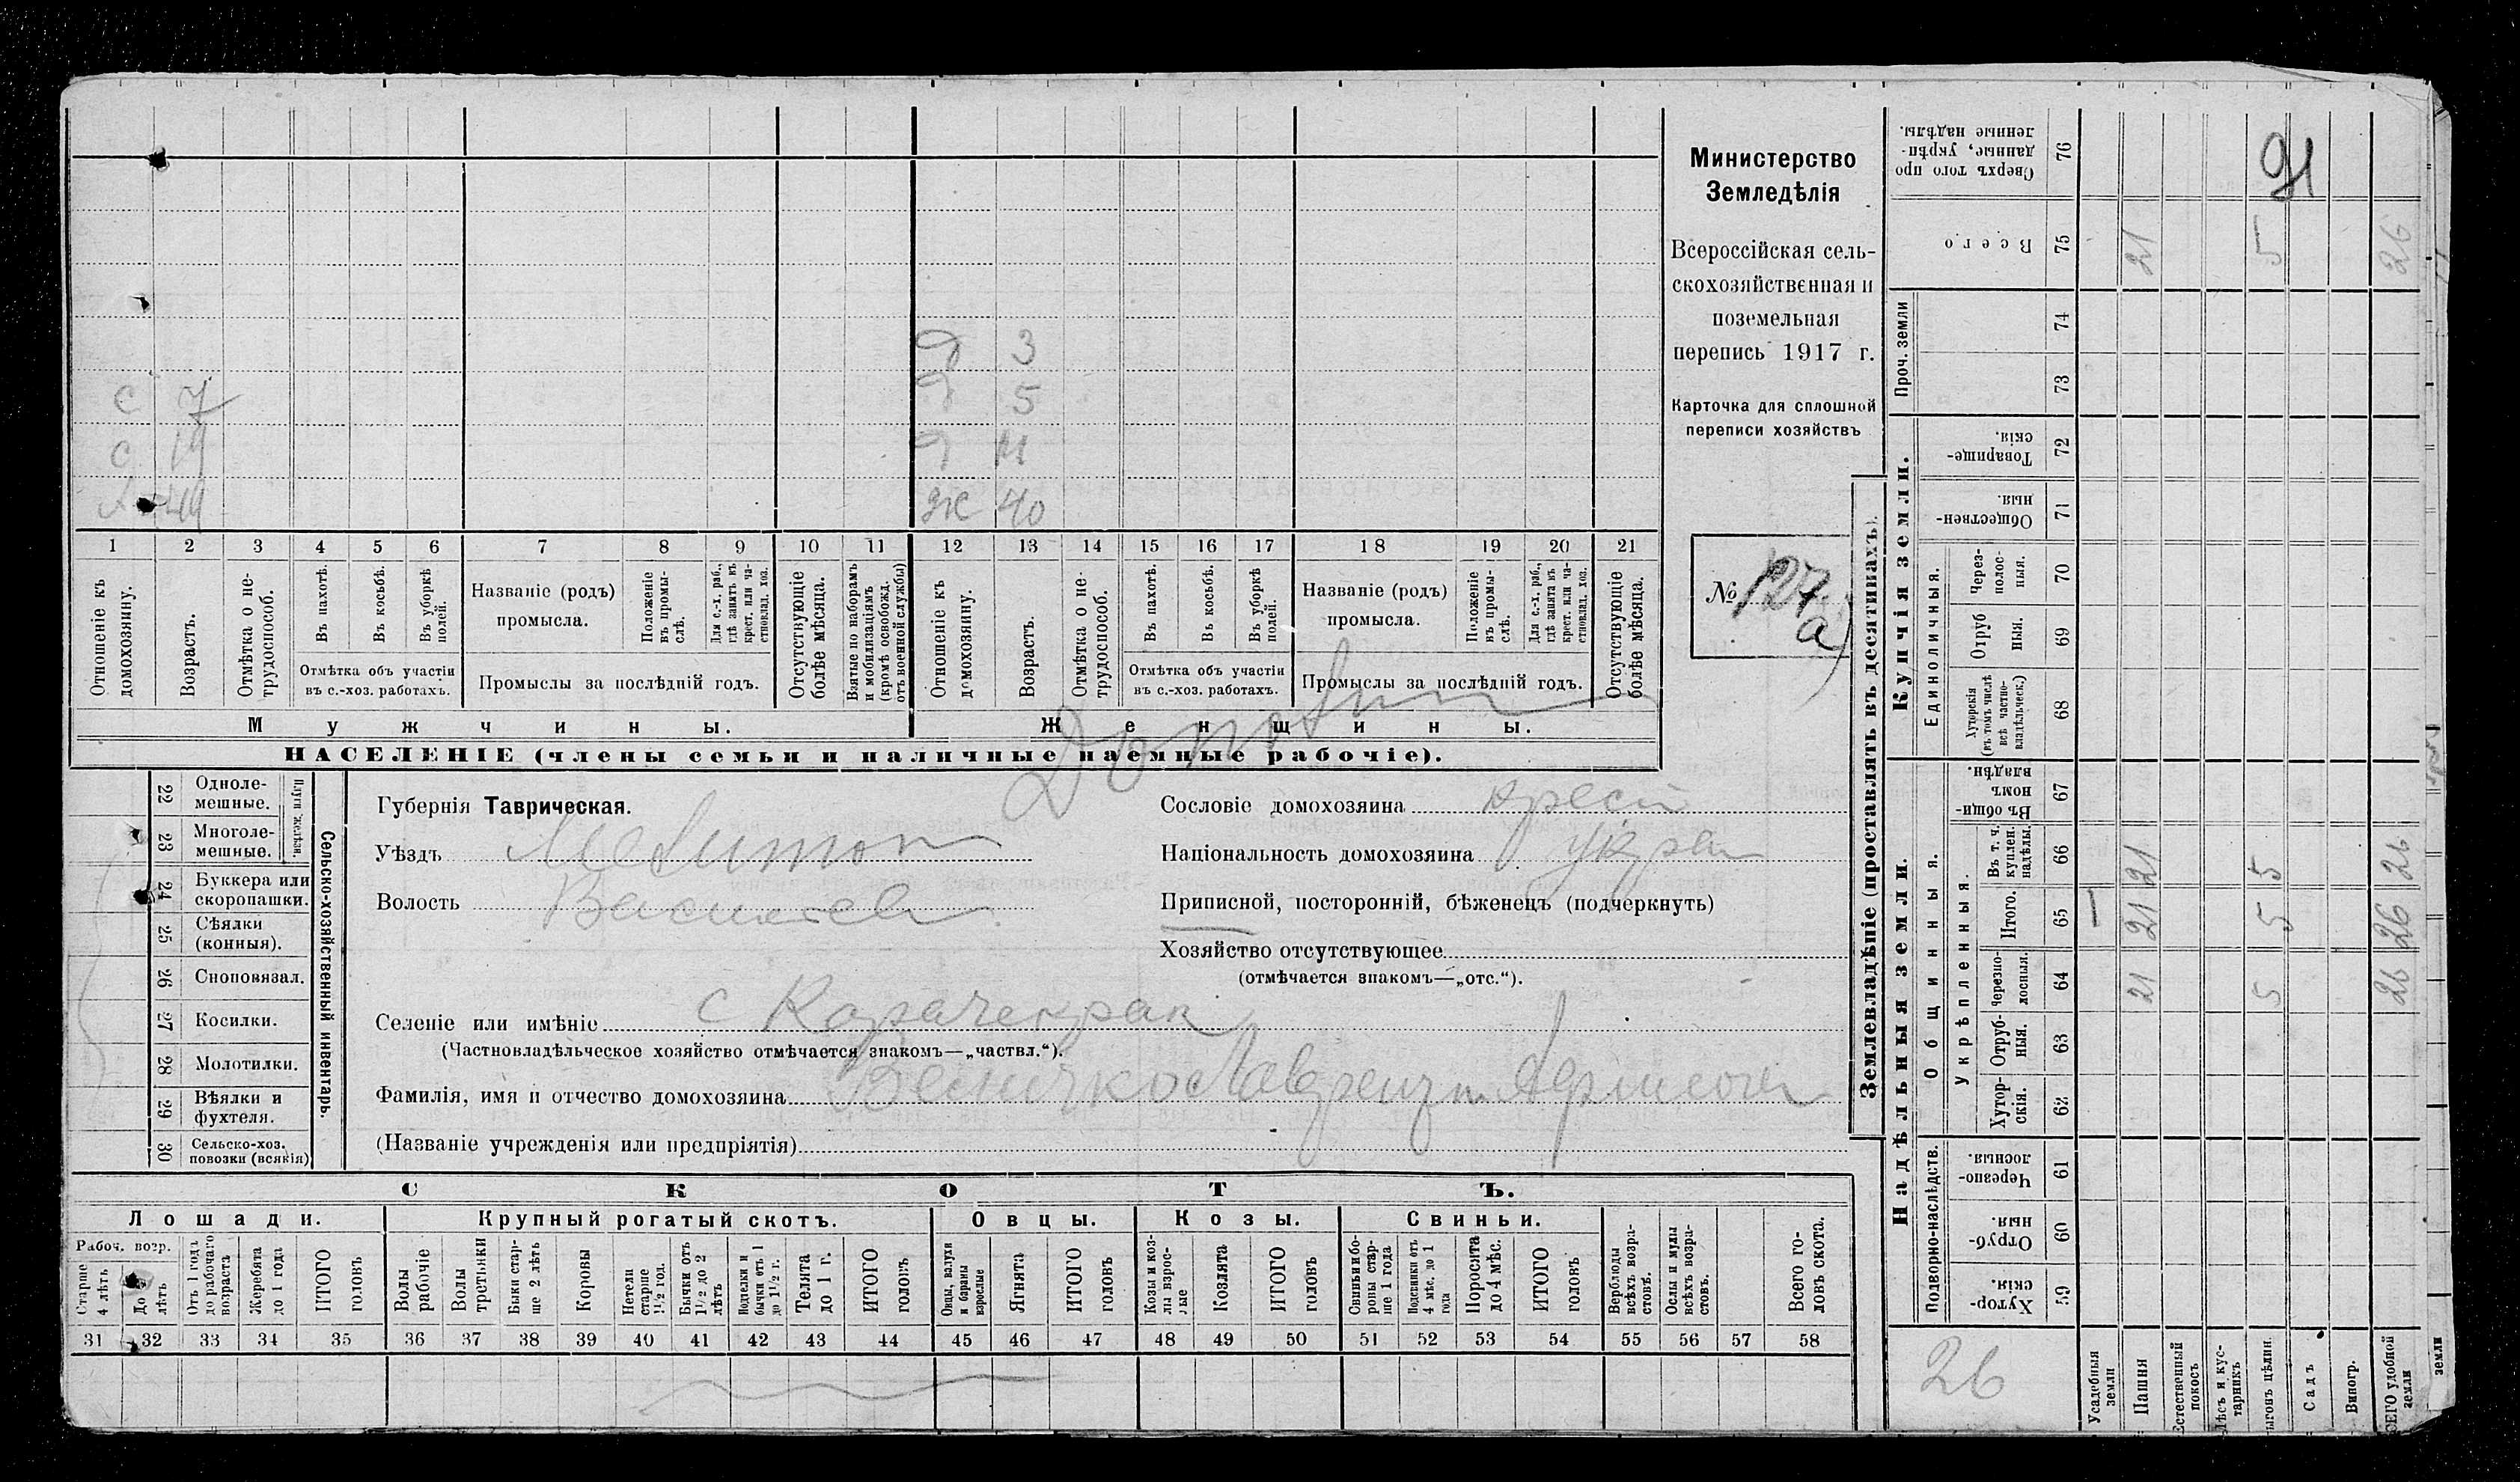 с 7
с 19
49
д 3
д 5
д 11
ж 40
1 2 3 4 5 6 7 8 9 10 11 12 13 14 15 16 17 18 19 20 21
Отношеніе къ домохозяину.
Возрастъ.
Отмѣтка о не-трудоспособ.
Въ пахотѣ.
Въ косьбѣ.
Въ уборкѣ полей.
Отмѣтка объ участіи
въ с.-хоз. работахъ.
Названіе (родъ)
промысла.
Положеніе въ промы-слѣ.
Для с.-х. раб., гдѣ занятъ въ крест. или ча-стновлад. хоз.
Промыслы за послѣдній годъ.
Отсутствующіе болѣе мѣсяца.
Взятые по наборамъ и мобилизаціямъ (кромѣ освобожд. отъ военной службы)
Отношеніе къ домохозяину.
Возрастъ.
Отмѣтка о не-трудоспособ.
Въ пахотѣ.
Въ косьбѣ.
Въ уборкѣ полей.
Отмѣтка объ участіи
въ с.-хоз. работахъ.
Названіе (родъ)
промысла.
Положеніе въ промы-слѣ.
Для с.-х. раб., гдѣ занята въ крест. или ча-стновлад. хоз.
Промыслы за послѣдній годъ.
Отсутствующіе болѣе мѣсяца.
Мужчины.
Женщины.
НАСЕЛЕНІЕ (члены семьи и наличные наемные рабочіе).
Министерство
Земледѣлія
Всероссійская сель-
скохозяйственная и
поземельная
перепись 1917 г.
Карточка для сплошной
переписи хозяйствъ
№ 127
а
Сельско-хозяйственный инвентарь.
Плуги желѣзн.
22 Одноле-мешные.
23 Многоле-мешные.
24 Буккера или скоропашки.
25 Сѣялки (конныя).
26 Сноповязал.
27 Косилки.
28 Молотилки.
29 Вѣялки и фухтеля.
30 Сельско-хоз. повозки (всякія)
Губернія Таврическая.
Уѣздъ Мелитоп
Волость Василев
Сословіе домохозяина крест
Національность домохозяина укра
Приписной, посторонній, бѣженецъ (подчеркнуть)
Хозяйство отсутствующее
(отмѣчается знакомъ—„отс.“).
Селеніе или имѣніе с Карачекрак
(Частновладѣльческое хозяйство отмѣчается знакомъ—„частвл.“).
Фамилія, имя и отчество домохозяина
(Названіе учрежденія или предпріятія)
СКОТЪ.
Лошади.
Рабоч. возр.
Старше 4 лѣтъ
До 4 лѣтъ
Отъ 1 года до рабочаго возраста
Жеребята до 1 года
ИТОГО головъ
Крупный рогатый скотъ.
Волы рабочіе
Волы третьяки
Быки стар-ше 2 лѣтъ
Коровы
Нетели старше 1½ год.
Бычки отъ 1½ до 2 лѣтъ
Подтелки и бычки отъ 1 до 1½ г.
Телята до 1 г.
ИТОГО головъ
Овцы.
Овцы, валухи и бараны взрослые
Ягнята
ИТОГО головъ
Козы.
Козы и коз-лы взрос-лые
Козлята
ИТОГО головъ
Свиньи.
Свиньи и бо-ровы стар-ше 1 года
Подсвинки отъ 4 мѣс. до 1 года
Поросята до 4 мѣс.
ИТОГО головъ
Верблюды всѣхъ возра-стовъ.
Ослы и мулы всѣхъ возра-стовъ.
Всего го-ловъ скота.
31 32 33 34 35 36 37 38 39 40 41 42 43 44 45 46 47 48 49 50 51 52 53 54 55 56 57 58
Землевладѣніе (проставлять въ десятинахъ).
91
Сверхъ того про-данные, укрѣп-ленные надѣлы. 76
Всего 75 21 5 26
Проч. земли
74
73
Купчія земли.
Товарище-скія. 72
Обществен-ныя. 71
Единоличныя.
Через-полос-ныя. 70
Отруб ныя. 69
Хуторскія (въ томъ числѣ всѣ частно-владѣльческ.) 68
Надѣльныя земли.
Общинныя.
Въ общи-номъ владѣн. 67
Укрѣпленныя.
Въ т. ч. куплен. надѣлы. 66 21 5 26
Итого. 65 21 5 26
Черезпо-лосныя. 64 21 5 26
Отруб-ныя. 63
Хутор-скія. 62
Подворно-наслѣдств.
Черезпо-лосныя. 61
Отруб-ныя. 60
Хутор-скія. 59
26
Усадебныя земли
Пашня
Естественный покосъ
Лѣсъ и кус-тарникъ
Садъ
Виногр.
удобной земли
земли